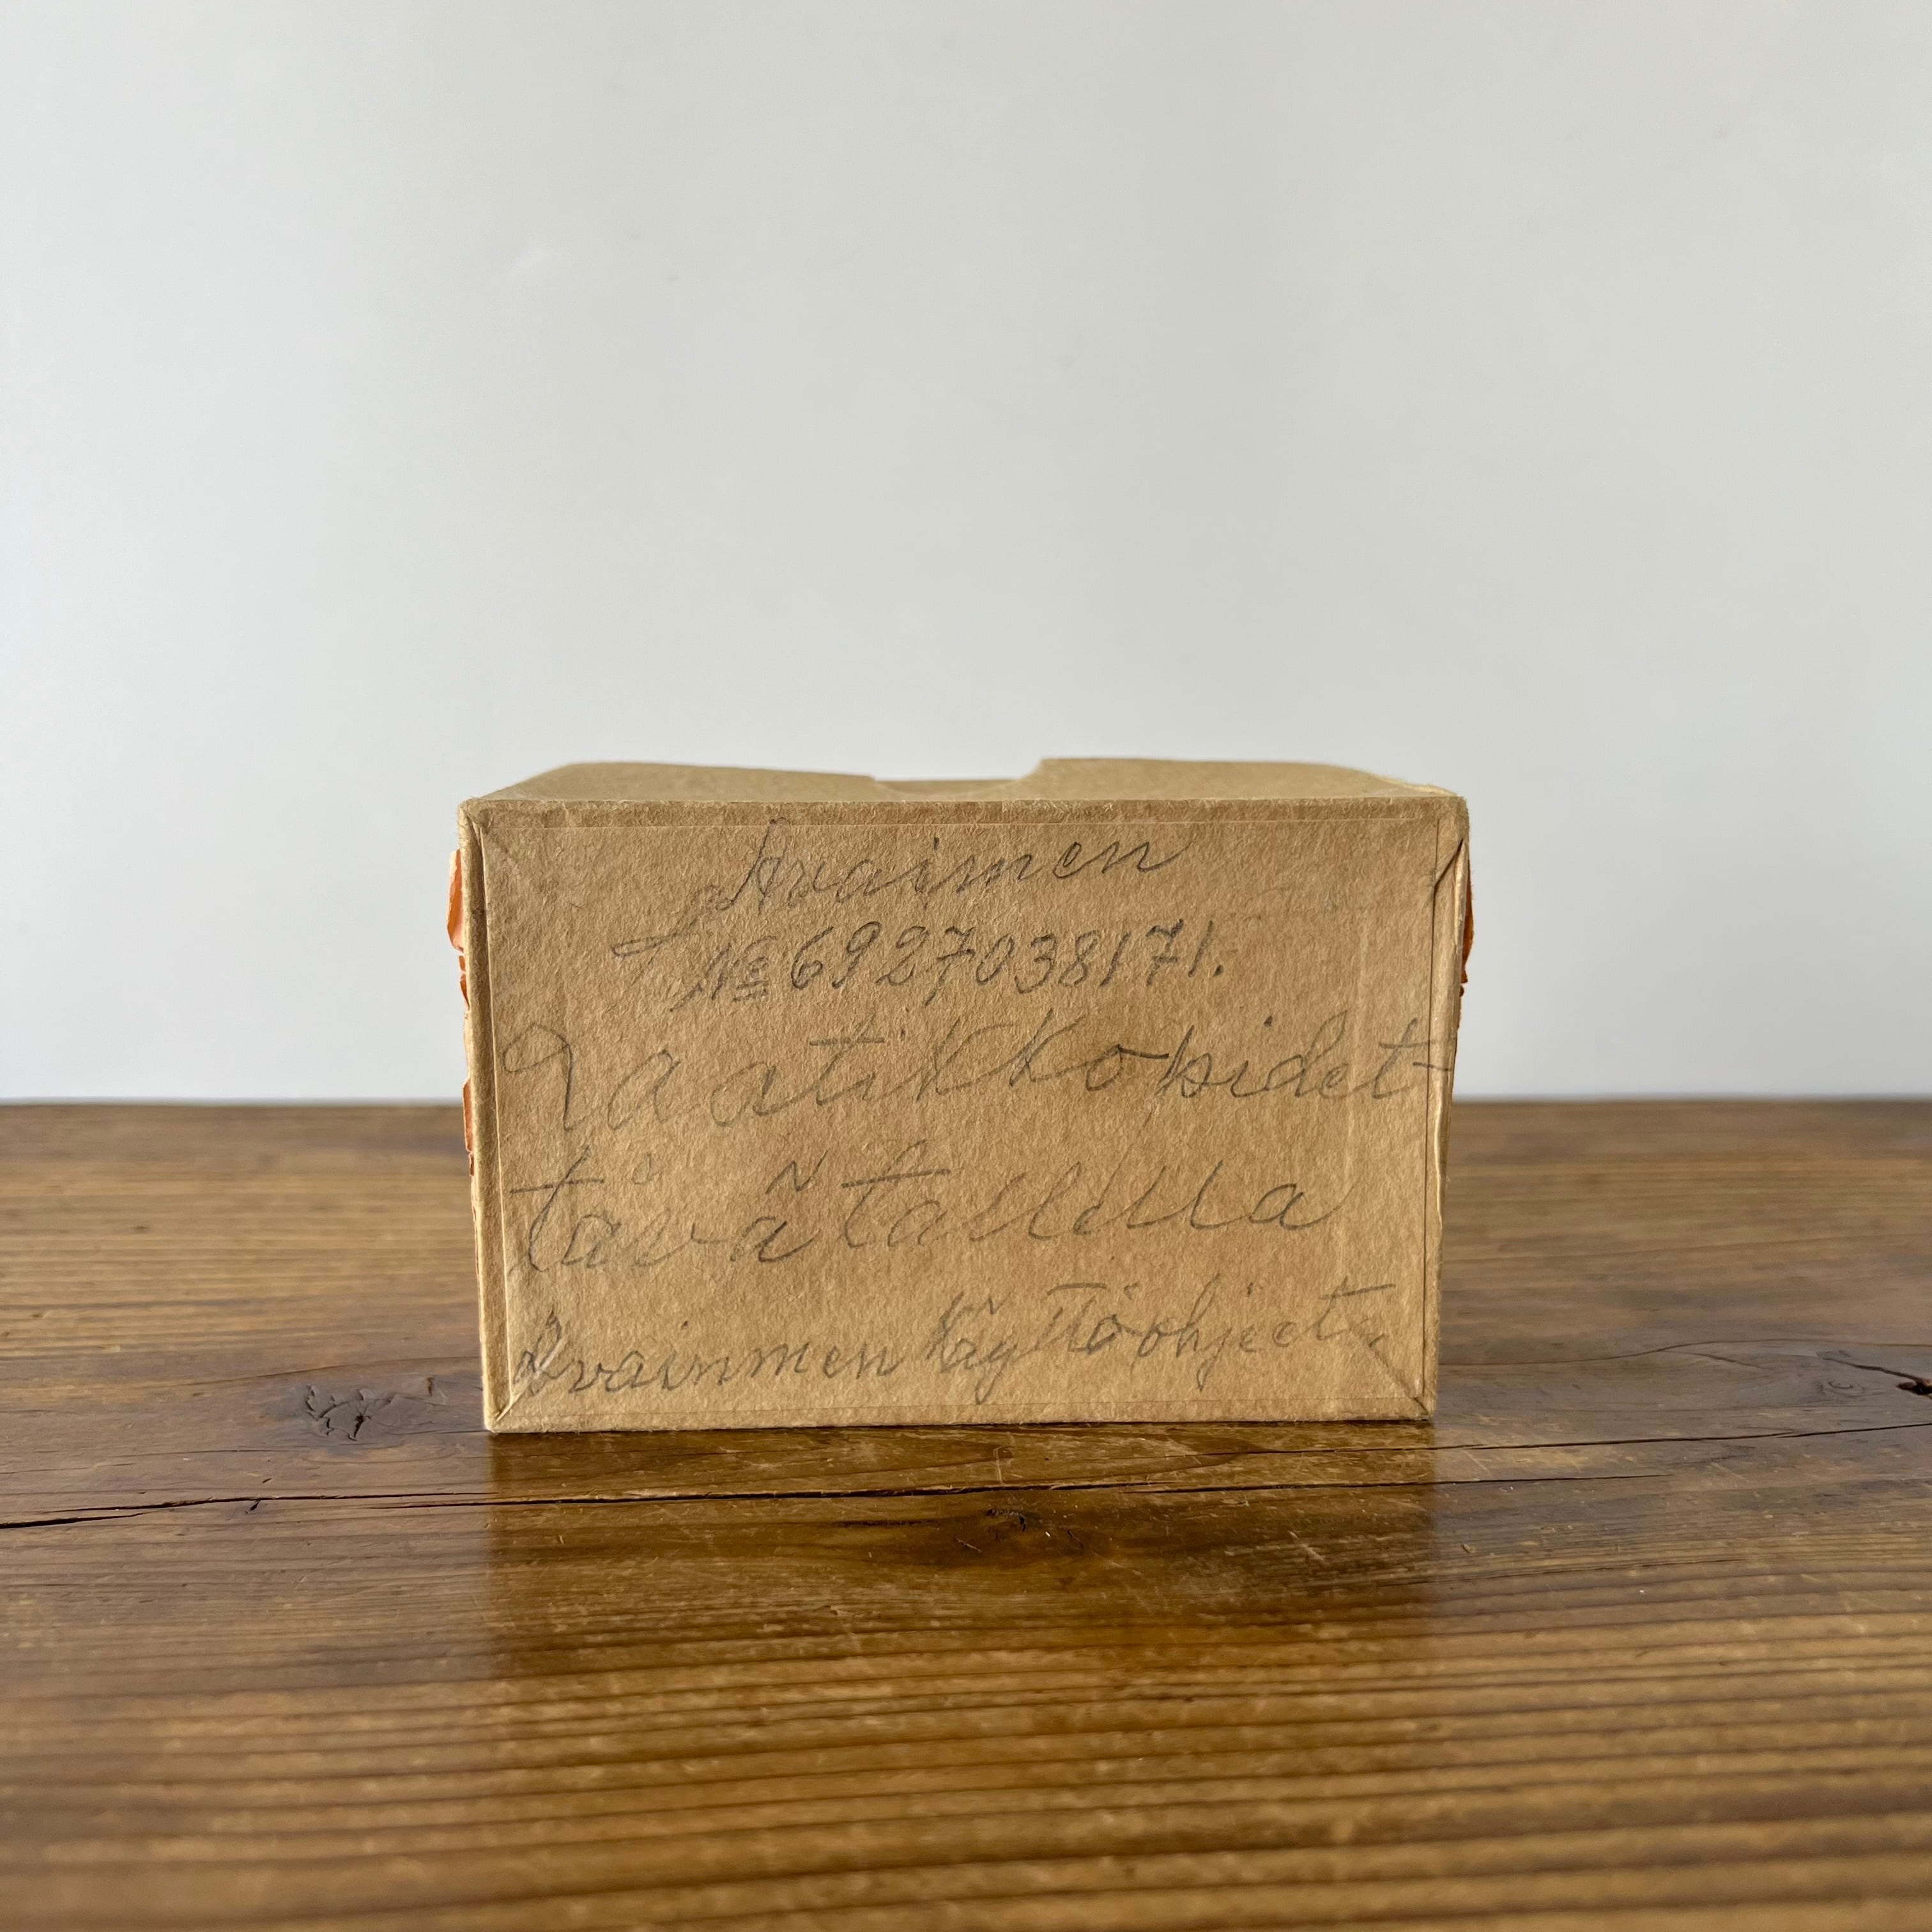 Avaimen
№ 6927038171.
Laatikko pidet-
tävä tallella
Avainmen käyttöohjeet.